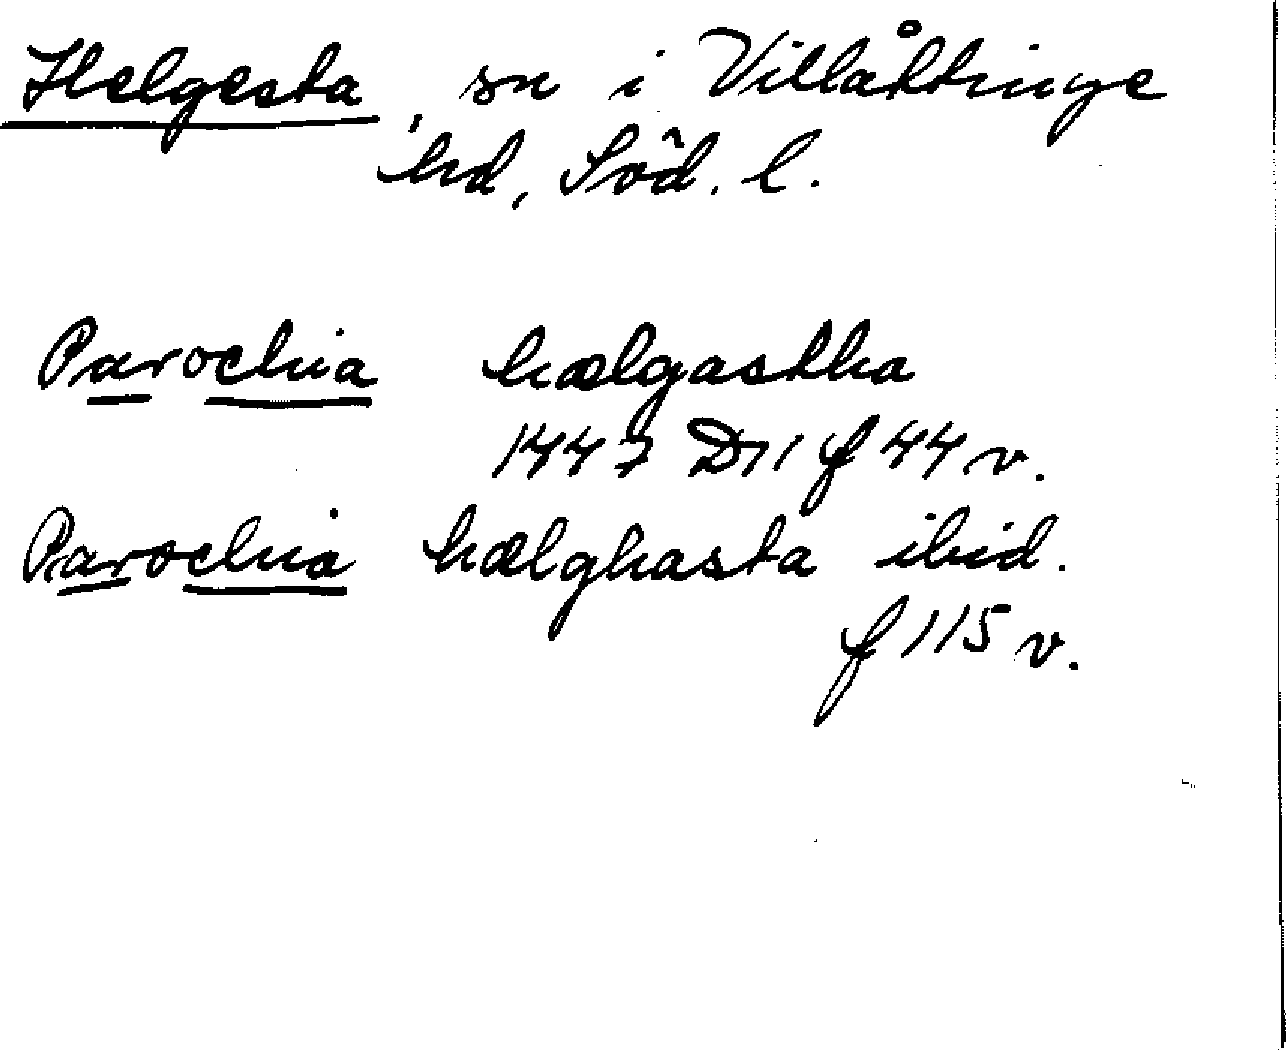 Helgesta, sn i Villåttinge
hd, Söd. l.
Parochia hælgastha
1447 D11 f 44 v.
Parochia hælghasta ibid.
f 115 v.